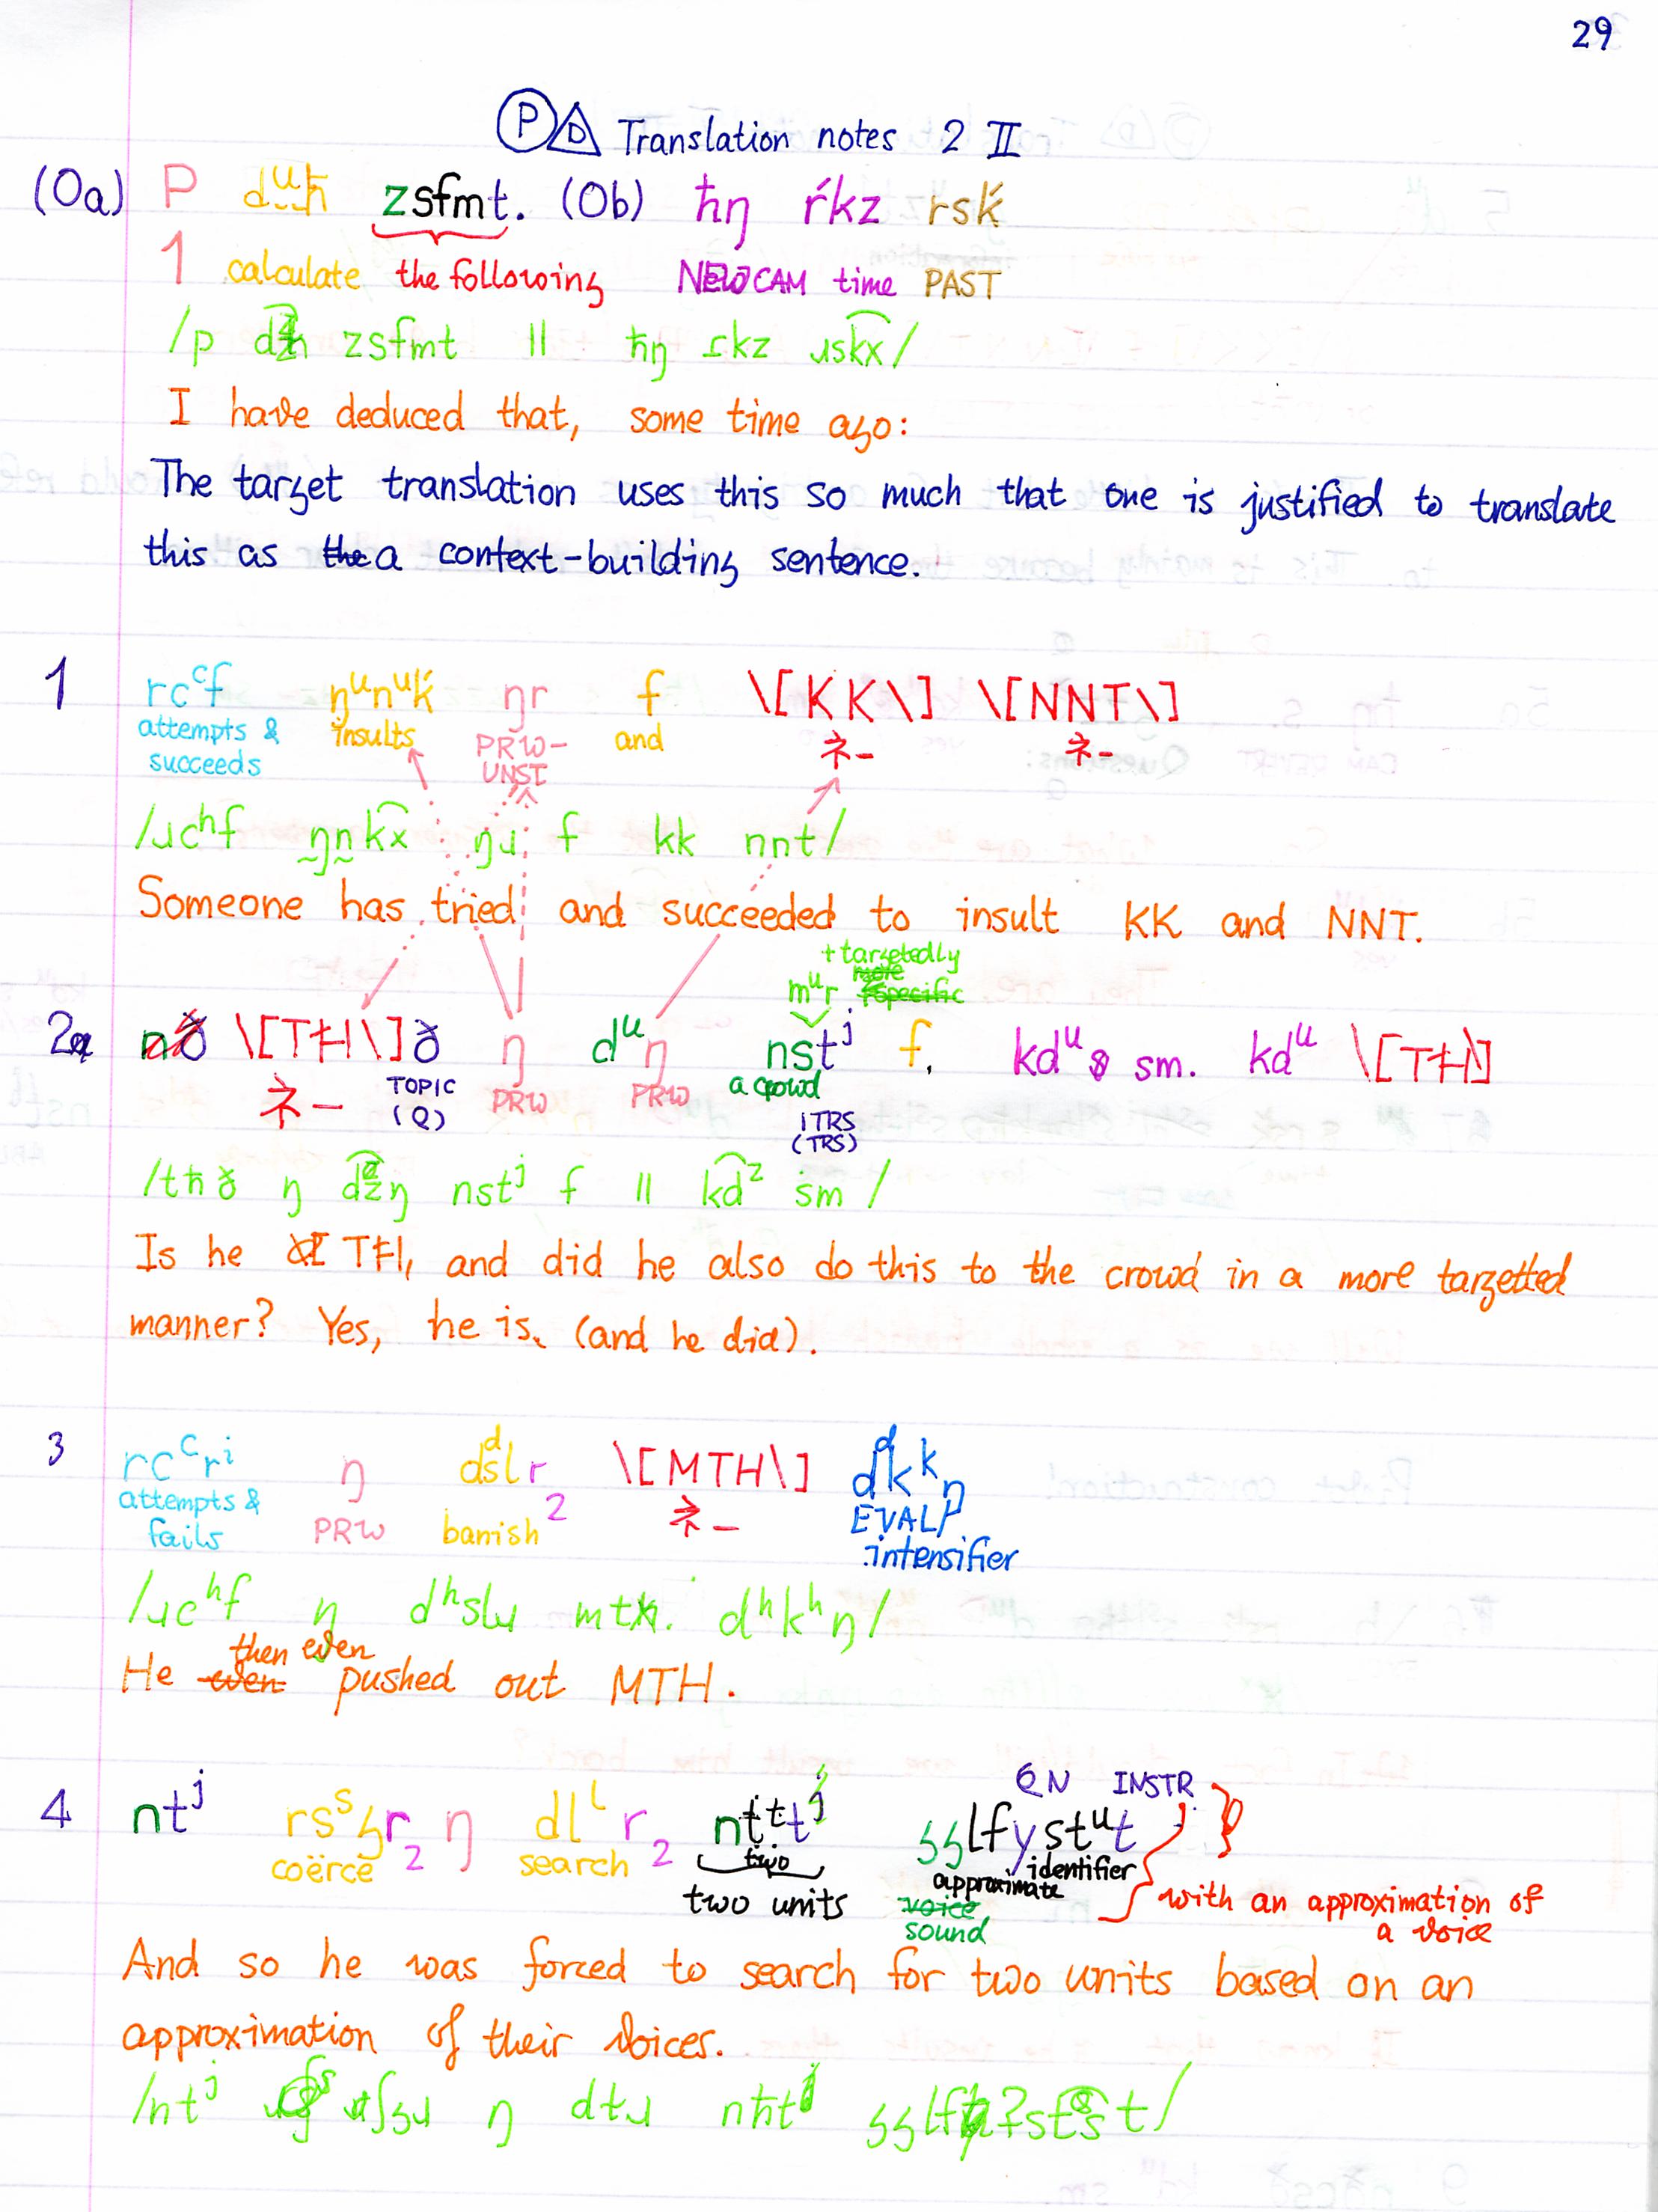 29
P D Translation notes 2 II
(0a) P zsfmt. (0b) ħŋ ŕkz rsḱ
1 calculate the following NEW CAM time PAST
/p zsfmt || ħŋ ɾkz ɹskx/
I have deduced that, some time ago:
The target translation uses this so much that one is justified to translate
this as a context-building sentence.
1 rcᶜf ŋᵘnᵘḱ ŋr f \[KK\] \[NNT\]
attempts & succeeds insults PRW-UNST and ネー ネー
/ɹcʰf ŋ̰n̰kx ŋɹ f kk nnt/
Someone has tried and succeeded to insult KK and NNT.
+targetedly
mᵘr
2a \[TⱧ\]ð ŋ dᵘŋ nstʲ f. kdᵘ sm. kdᵘ \[TⱧ\]
ネー TOPIC (Q) PRW PRW a crowd ITRS (TRS)
/tħð ŋ nstʲ f || kdᶻ sm /
Is he TⱧ, and did he also do this to the crowd in a more targetted
manner? Yes, he is, (and he did).
3 rcᶜrⁱ ŋ dᵈslr \[MTH\] dᵈkᵏŋ
attempts & fails PRW banish 2 ネー EVALP intensifier
/ɹcʰf ŋ dʰslɹ dʰkʰŋ/
then even
He pushed out MTH.
QN INSTR
4 ntʲ rsˢʒr ŋ dlˡr
coërce 2 search 2 two approximate identifier
two units sound with an approximation of
a voice
And so he was forced to search for two units based on an
approximation of their voices.
/ntʲ ŋ